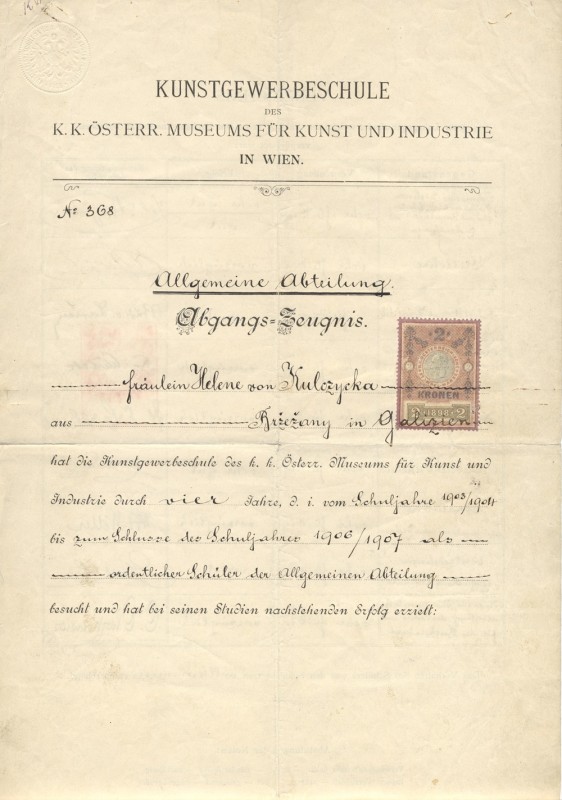 KUNSTGEWERBESCHULE
DES
K. K. ÖSTERR. MUSEUMS FÜR KUNST UND INDUSTRIE
IN WIEN.
No 368
Allgemeine Abteilung.
Abgangs=Zeugnis.
fräulein Helene von Kulczycka
2
KRONEN
2 1898 2
aus Bržežany in Galizien
hat die Kunstgewerbeschule des k. k. Österr. Museums für Kunst und
Industrie durch vier Jahre, d. i. vom Schuljahre 1903/1904
bis zum Schlusse des Schuljahres 1906/1907 als
ordentlicher Schüler der Allgemeinen Abteilung
besucht und hat bei seinen Studien nachstehenden Erfolg erzielt: